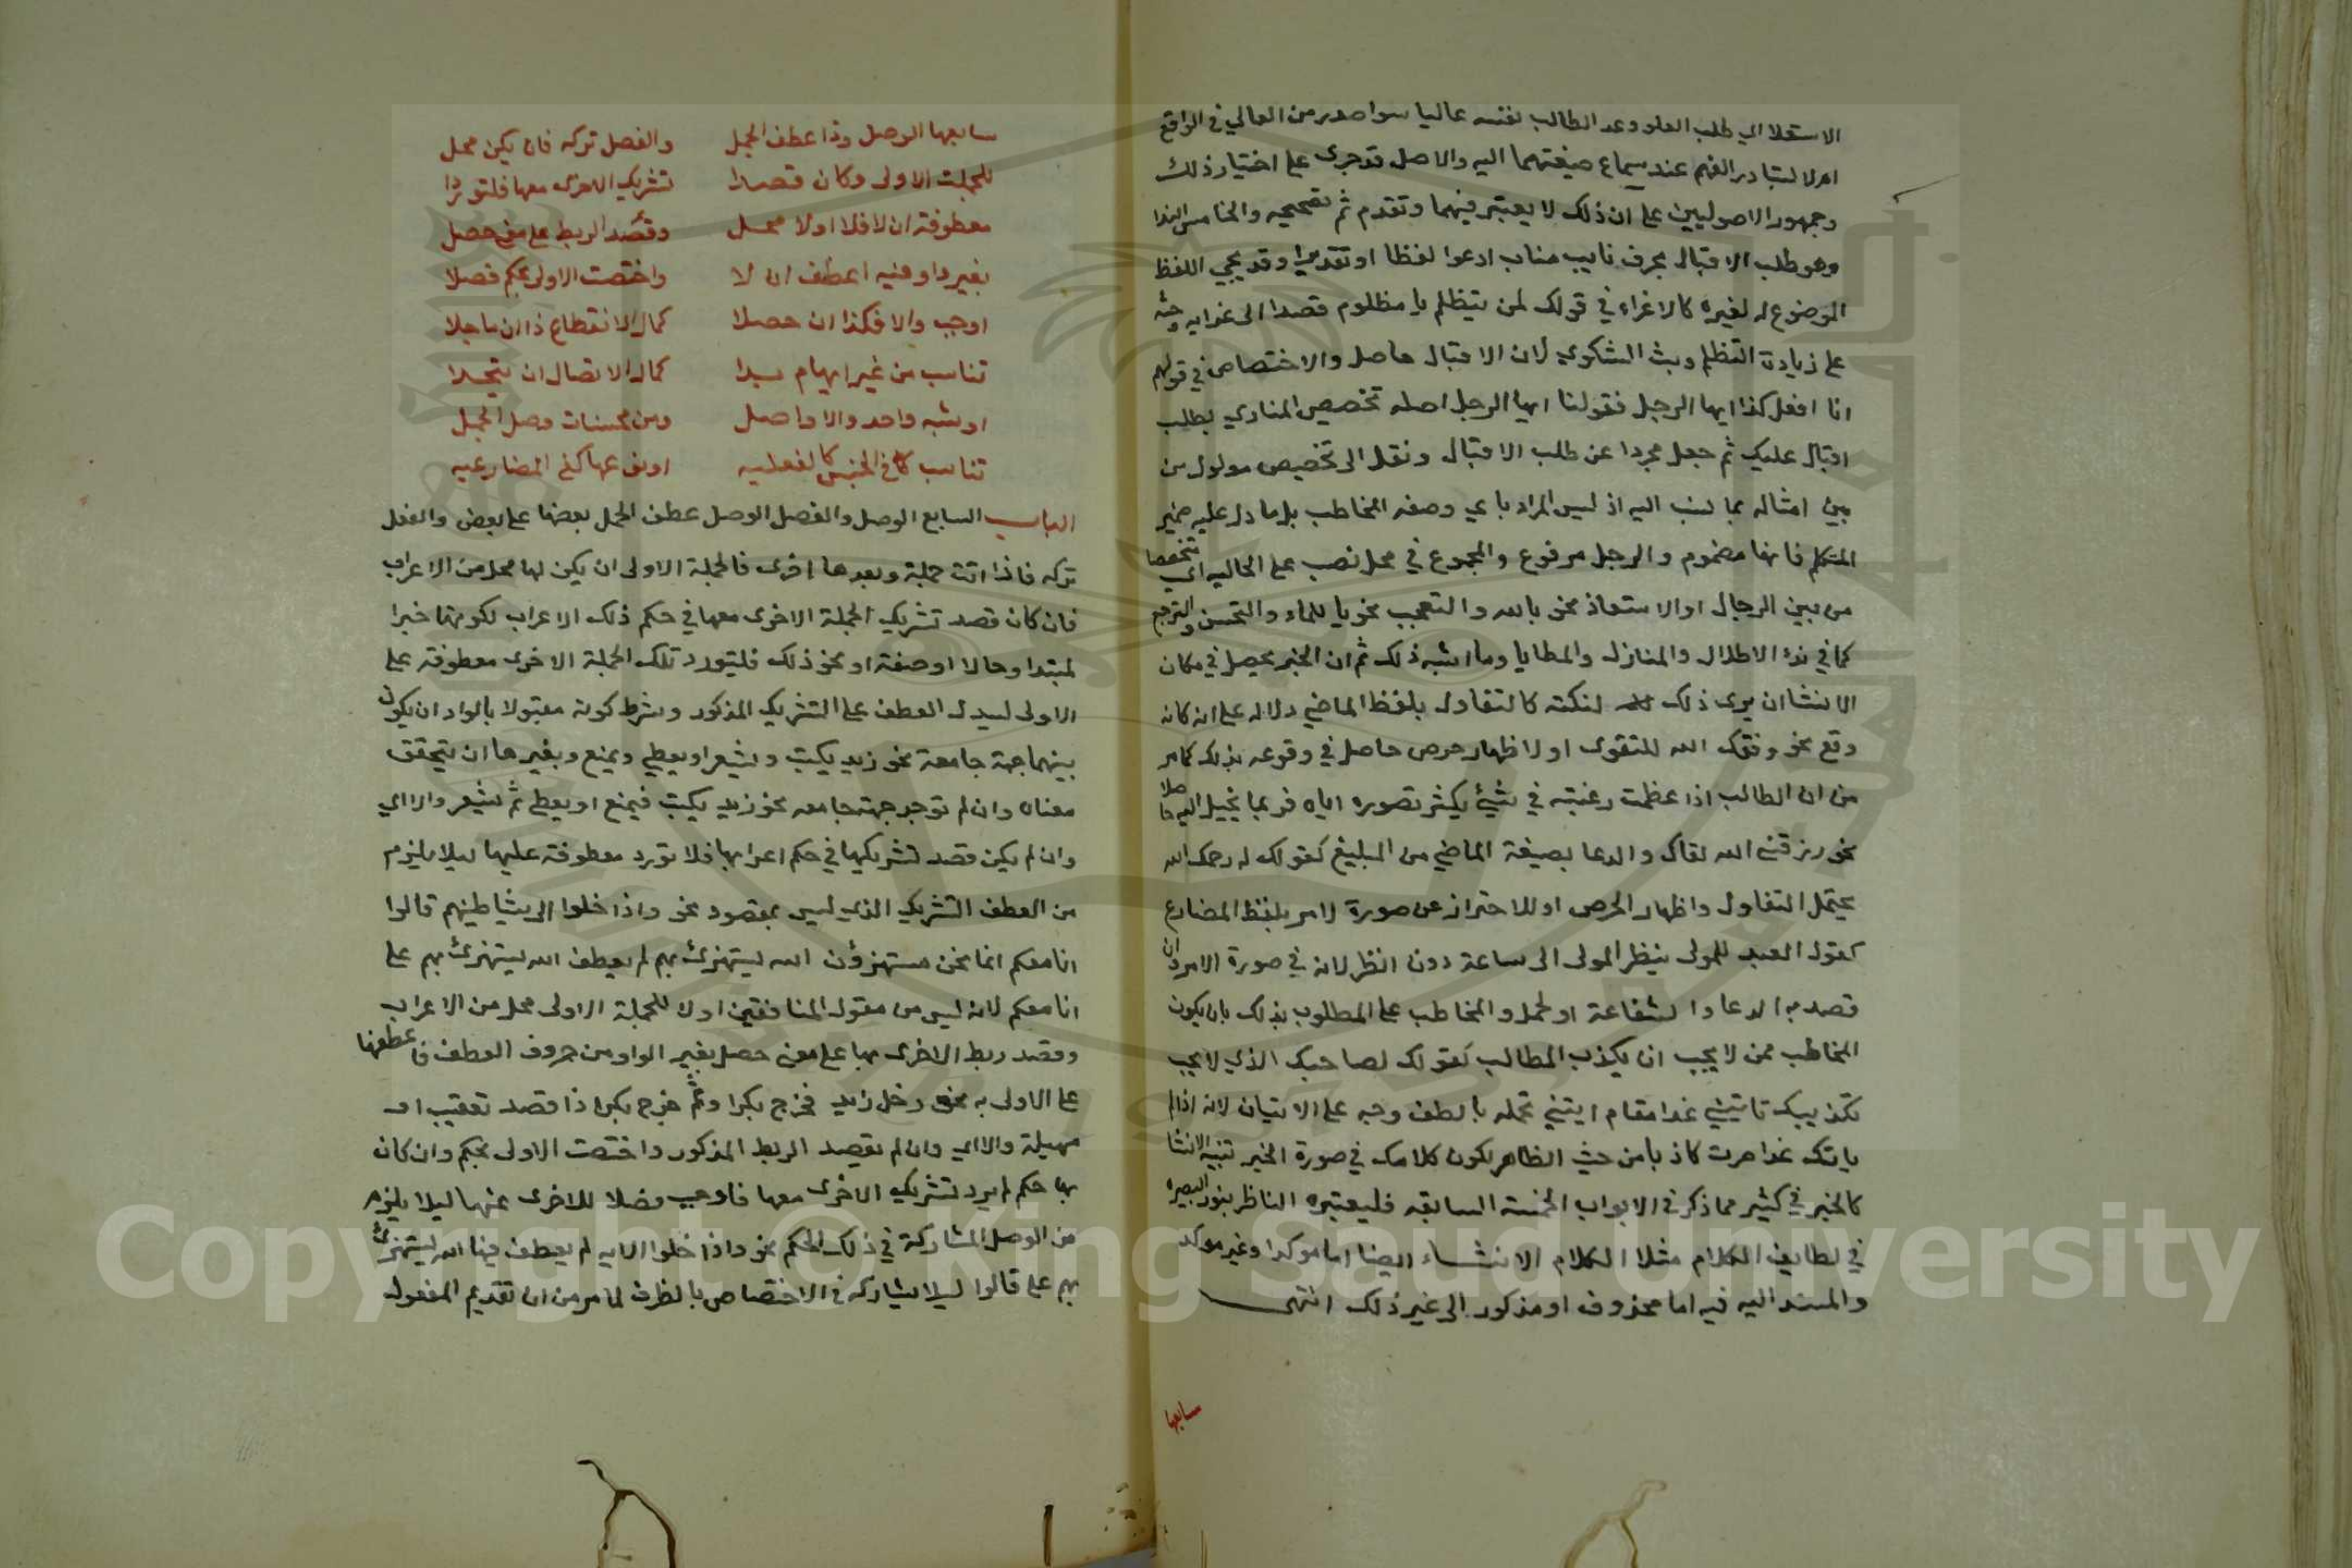 الاستعلا اي طلب العلو وعد الطالب نفسه عاليا سوا صدر من العالي في الواقع
ام لا لتبادر الفهم عند سماع صيغتهما اليه والاصل قد جرى على اختيار ذلك
وجمهور الاصوليين على ان ذلك لا يعتبر فيهما وتقدم ثم تصحيحه والخامس الندا
وهو طلب الاقبال بحرف نايب مناب ادعوا لفظا او تقديرا وقد يجي اللفظ
الموضوع له لغيره كالاغراء في قولك لمن يتظلم يا مظلوم قصدا الى غرايه وحثه
على زيادة التظلم وبث الشكوي لان الاقبال حاصل والاختصاص في قولهم
انا افعل كذا ايها الرجل فقولنا ايها الرجل اصله تخصيص المنادي بطلب
اقبال عليك ثم جعل مجردا عن طلب الاقبال ونقل الى تخصيص مدلول من
بين امثاله بما نسب اليه اذ ليس المراد باي وصفه المخاطب بل ما دل عليه ضمير
المتكلم فانها مضموم والرجل مرفوع والمجموع في محل نصب على الحاليه اي متخصصا
من بين الرجال او الاستغاذ نحو بالله والتعجب نحو يا للماء والتحسر والترجع
كما في نداء الاطلال والمنازل والمطايا وما اشبه ذلك ثم ان الخبر يحصل في مكان
الانشا ان يرى ذلك لنكته كالتفاول بلفظ الماضي دلاله على انه كانه
وقع نحو وفقك الله للتقوى او لاظهار حرص حاصل في وقوعه بذلك كما مر
من ان الطالب اذا عظمت رغبته في شيئ يكثر تصوره اياه فربما يخيل اليه حاصلا
نحو رزقني الله لقاك والدعا بصيغة الماضي من البليغ كقولك له رحمك الله
يحتمل التفاول واظهار الحرص او للاحتراز عن صورة لامر بلفظ المضارع
كقول العبد للمولى ينظر المولى الى ساعة دون انظر لانه في صورة الامر وان
قصد به الدعا والشفاعة او لحمل والمخاطب على المطلوب بذلك بان يكون
المخاطب ممن لا يحب ان يكذب المطالب كقولك لصاحبك الذي لا يحب
تكذيبك تاتيني غدا مقام ايتني تحمله بالطف وجه على الاتيان لانه اذا لم
ياتك غدا صرت كاذبا من حيث الظاهر لكون كلامك في صورة الخبر تنبيه الانشا
كالخبر في كثير مما ذكر في الابواب الخمسة السابقه فليعتبره الناظر بنور البصيره
في لطايف الكلام مثلا الكلام الانشاء ايضا اما موكد او غير موكد
والمسند اليه فيه اما محذوف او مذكور الى غير ذلك انتهى
سابعها
سابعها الوصل وذا عطف الجمل والفصل تركه فان يكن محل
للجملة الاولى وكان قصدا تشريك الاخرى معها فلتوردا
معطوفة ان لا فلا اولا محل وقصد الربط على معنى حصل
بغير واو فيه اعطف ان لا واختصت الاولى بحكم فصلا
اوجب والا فكذا ان حصلا كمال الانقطاع ذا ان ما جلا
تناسب من غير ايهام بدا كمال الاتصال ان يتحدا
او شبه واحد والا واصل ومن محسنات وصل الجمل
تناسب كا في الجنس كالفعليه او نوعها كفي المضارعيه
الباب السابع الوصل والفصل الوصل عطف الجمل بعضها على بعض والفصل
تركه فاذا اتت جملة وبعدها اخرى فالجملة الاولى ان يكن لها محل من الاعراب
فان كان قصد تشريك الجملة الاخرى معها في حكم ذلك الاعراب لكونها خبرا
لمبتدا وحالا او صفة او نحو ذلك فليتورد تلك الجملة الاخرى معطوفة على
الاولى ليدل العطف على التشريك المذكور وشرط كونه مقبولا بالواو ان يكون
بينهما جهة جامعة نحو زيد يكتب ويشعر او يعطي ويمنع وبغيرها ان يتحقق
معناه وان لم توجد جهة جامعه نحو زيد يكتب فيمنع او يعطي ثم يشعر والا اي
وان لم يكن قصد تشريكها في حكم اعرابها فلا تورد معطوفة عليها ليلا يلزم
من العطف التشريك الذي ليس بمقصود نحو واذا خلوا الى شياطينهم قالوا
انا معكم انما نحن مستهزؤن الله يستهزئ بهم لم يعطف الله يستهزئ بهم على
انا معكم لانه ليس من مقول المنافقين اولا للجملة الاولى محل من الاعراب
وقصد ربط الاخرى بها على معنى حصل بغير الواو من حروف العطف فاعطفها
على الاولى به نحو دخل زيد فخرج بكرا وثم خرج بكر اذا قصد تعقيب او
مهيلة والا اي وان لم يقصد الربط المذكور واختصت الاولى بحكم وان كان
بها حكم لم يرد تشريك الاخرى معها فاوجب فصلا للاخرى عنها ليلا يلزم
من الوصل المشاركة في ذلك الحكم نحو واذا خلوا الايه لم يعطف فيها الله يستهزئ
بهم على قالوا ليلا يشاركه في الاختصاص بالظرف لما مر من ان تقديم المفعول
Copyright © King Saud University